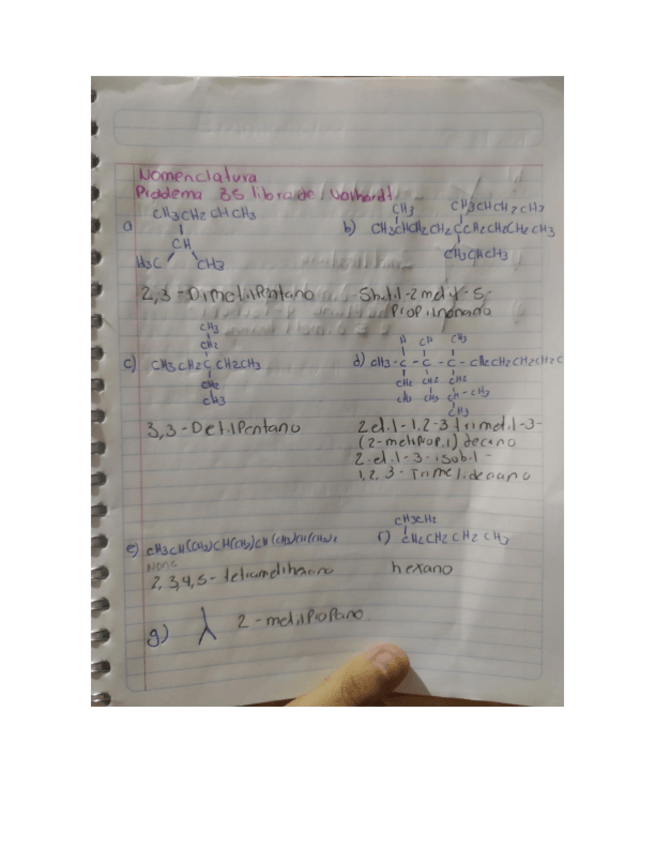 Nomenclatura
Problema 35 libro de Volhardt
a
CH3CH2CHCH3
CH
H3C CH3
2,3-Dimetilpentano
b)
CH3 CH3CHCH2CH3
CH3CHCH2CH2CCH2CH2CH2CH3
CH3CHCH3
-2metil-5-
Propilnonano
c)
CH3
CH2
CH3CH2C CH2CH3
CH2
CH3
3,3-Detilpentano
d)
H CH CH3
CH3-C-C-C-CH2CH2CH2CH2C
CH2 CH2 CH2
CH3 CH3 CH-CH3
CH3
2etil-1,2-3trimetil-3-
(2-metilprop.1)decano
2-etil-3-isobil-
1,2,3-Trimetildecano
e) CH3CH(CH3)CH(CH3)CH(CH3)CH(CH3)2
None
2,3,4,5-tetrametilhexano
f)
CH3CH2
CH2CH2CH2CH3
hexano
g) 2-metilpropano